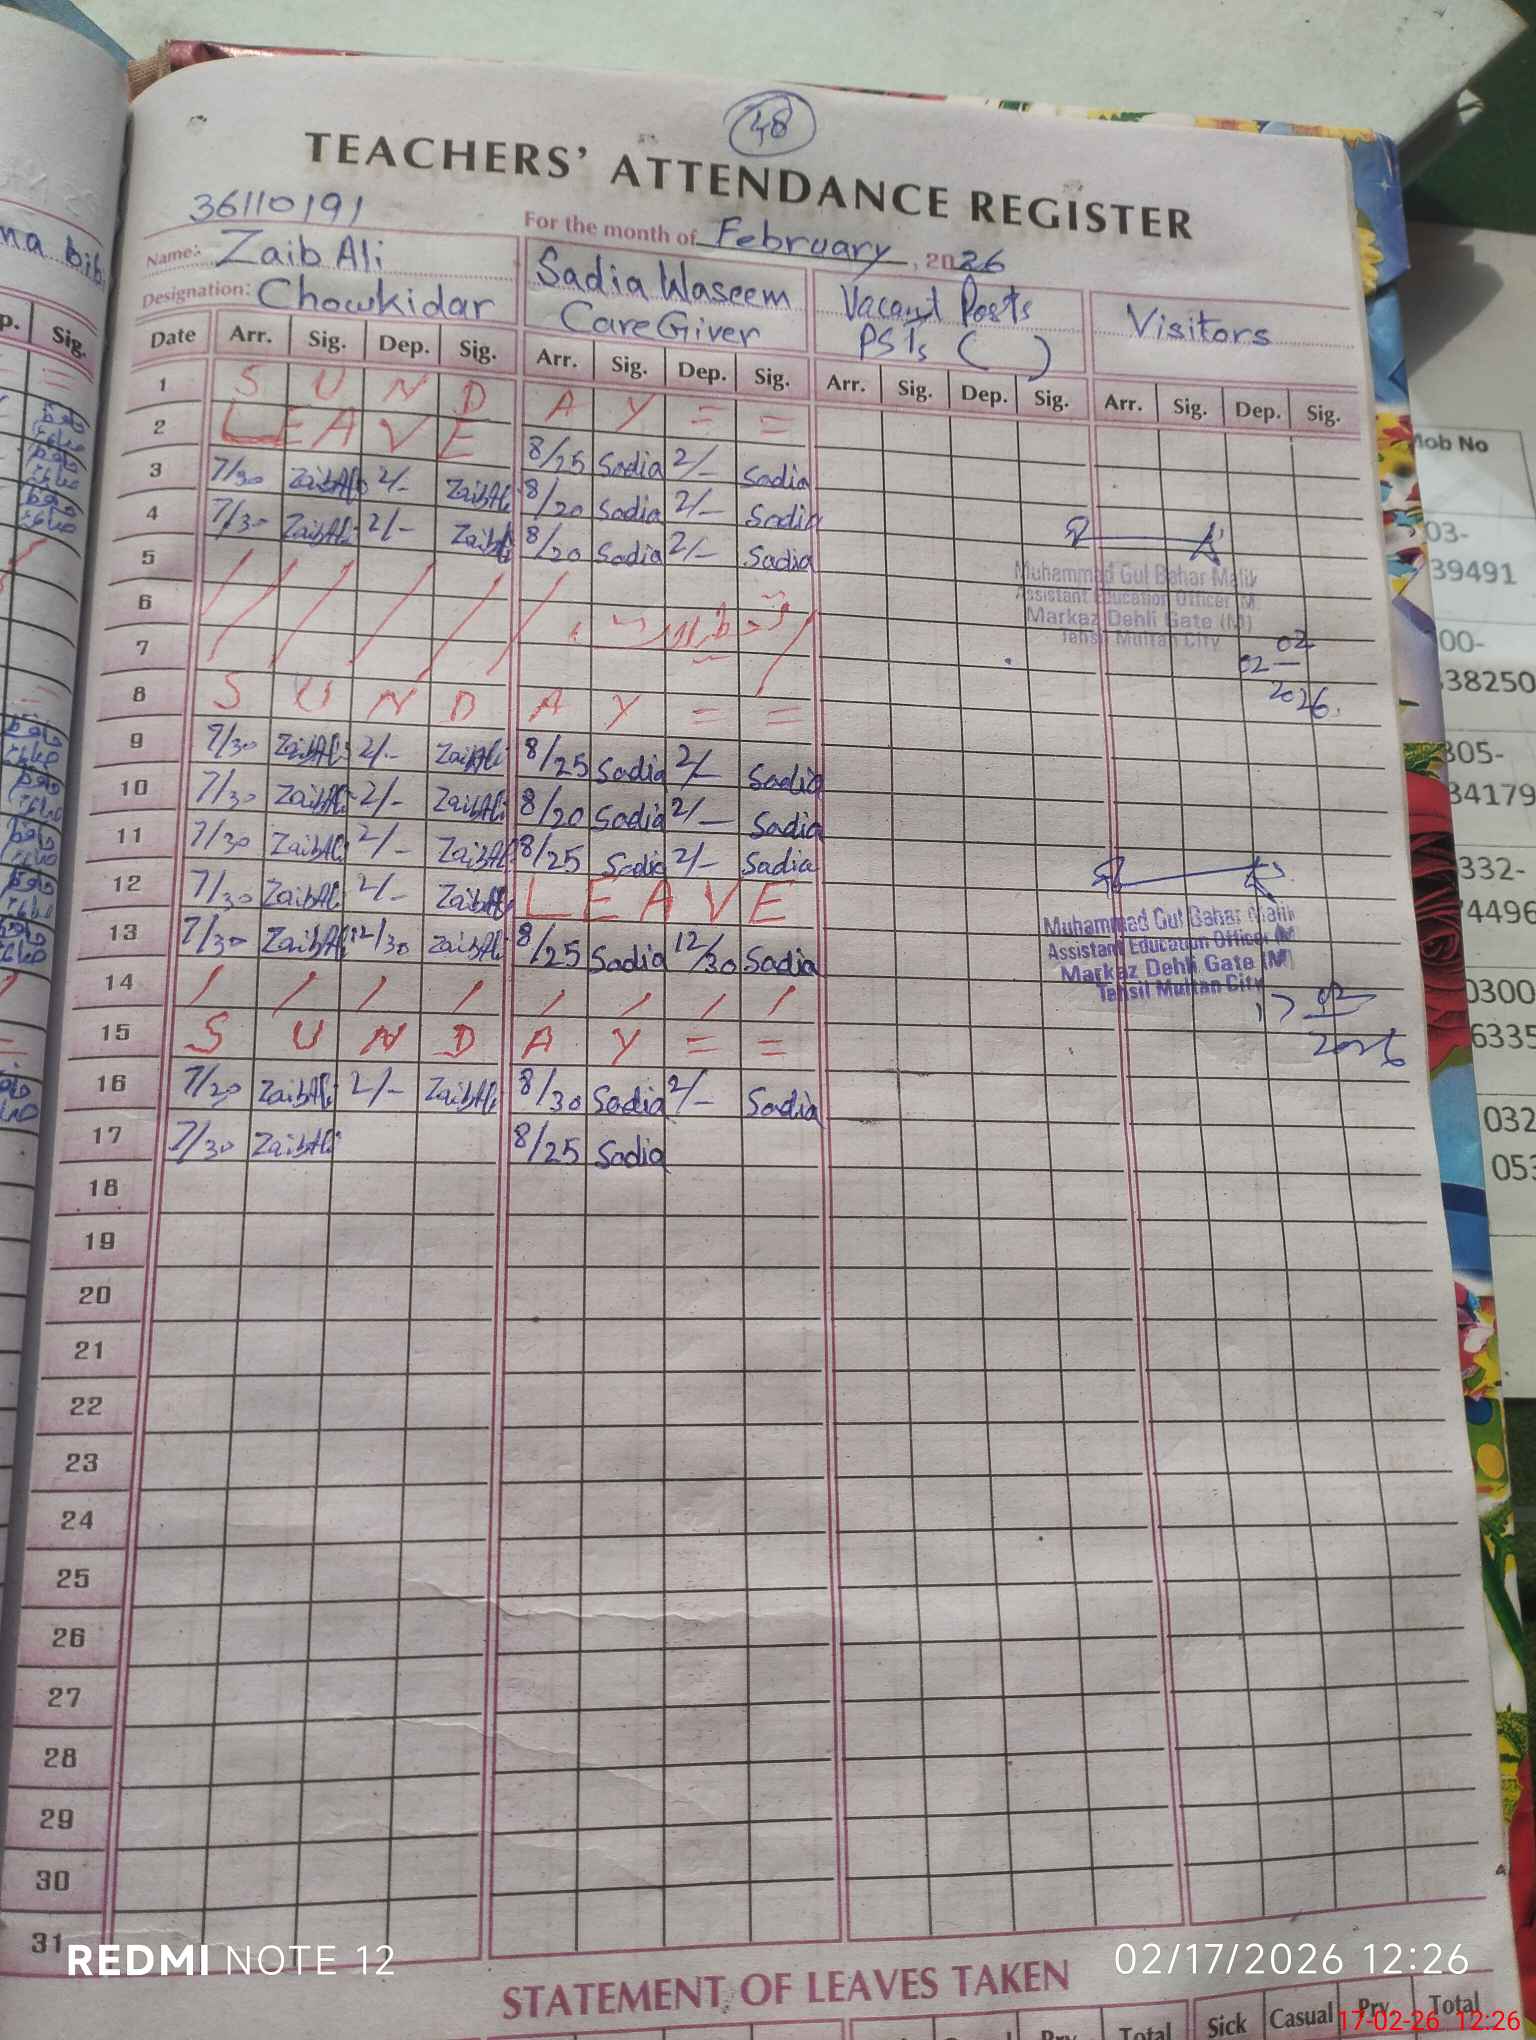 48
TEACHERS' ATTENDANCE REGISTER
36110191
For the month of February, 2026
Name: Zaib Ali
Designation: Chowkidar
Sadia Waseem
Care Giver
Vacant Posts
PSTs ( )
Visitors
Date Arr. Sig. Dep. Sig. Arr. Sig. Dep. Sig. Arr. Sig. Dep. Sig. Arr. Sig. Dep. Sig.
1 S U N D A Y = =
2 LEAVE 8/25 Sadia 2/- Sadia
3 7/30 ZaibAli 2/- ZaibAli 8/20 Sadia 2/- Sadia
4 7/30 ZaibAli 2/- ZaibAli 8/20 Sadia 2/- Sadia
5
6
7
Muhammad Gul Bahar Malik
Assistant Education Officer (M)
Markaz Dehli Gate (M)
Tehsil Multan City
02
02
2026
8 S U N D A Y = =
9 7/30 ZaibAli 2/- ZaibAli 8/25 Sadia 2/- Sadia
10 7/30 ZaibAli 2/- ZaibAli 8/20 Sadia 2/- Sadia
11 7/30 ZaibAli 2/- ZaibAli 8/25 Sadia 2/- Sadia
12 7/30 ZaibAli 2/- ZaibAli LEAVE
13 7/30 ZaibAli 12/30 ZaibAli 8/25 Sadia 12/30 Sadia
Muhammad Gul Bahar Malik
Assistant Education Officer (M)
Markaz Dehli Gate (M)
Tehsil Multan City
02
2026
14 / / / / / / / /
15 S U N D A Y = =
16 7/20 ZaibAli 2/- ZaibAli 8/30 Sadia 2/- Sadia
17 7/30 ZaibAli 8/25 Sadia
18
19
20
21
22
23
24
25
26
27
28
29
30
31
STATEMENT OF LEAVES TAKEN
Prv Total Sick Casual Prv Total
na bib
p. Sig.
Mob No
03-
39491
00-
38250
305-
34179
332-
74496
0300
6335
032
053
REDMI NOTE 12
02/17/2026 12:26
17-02-26 12:26